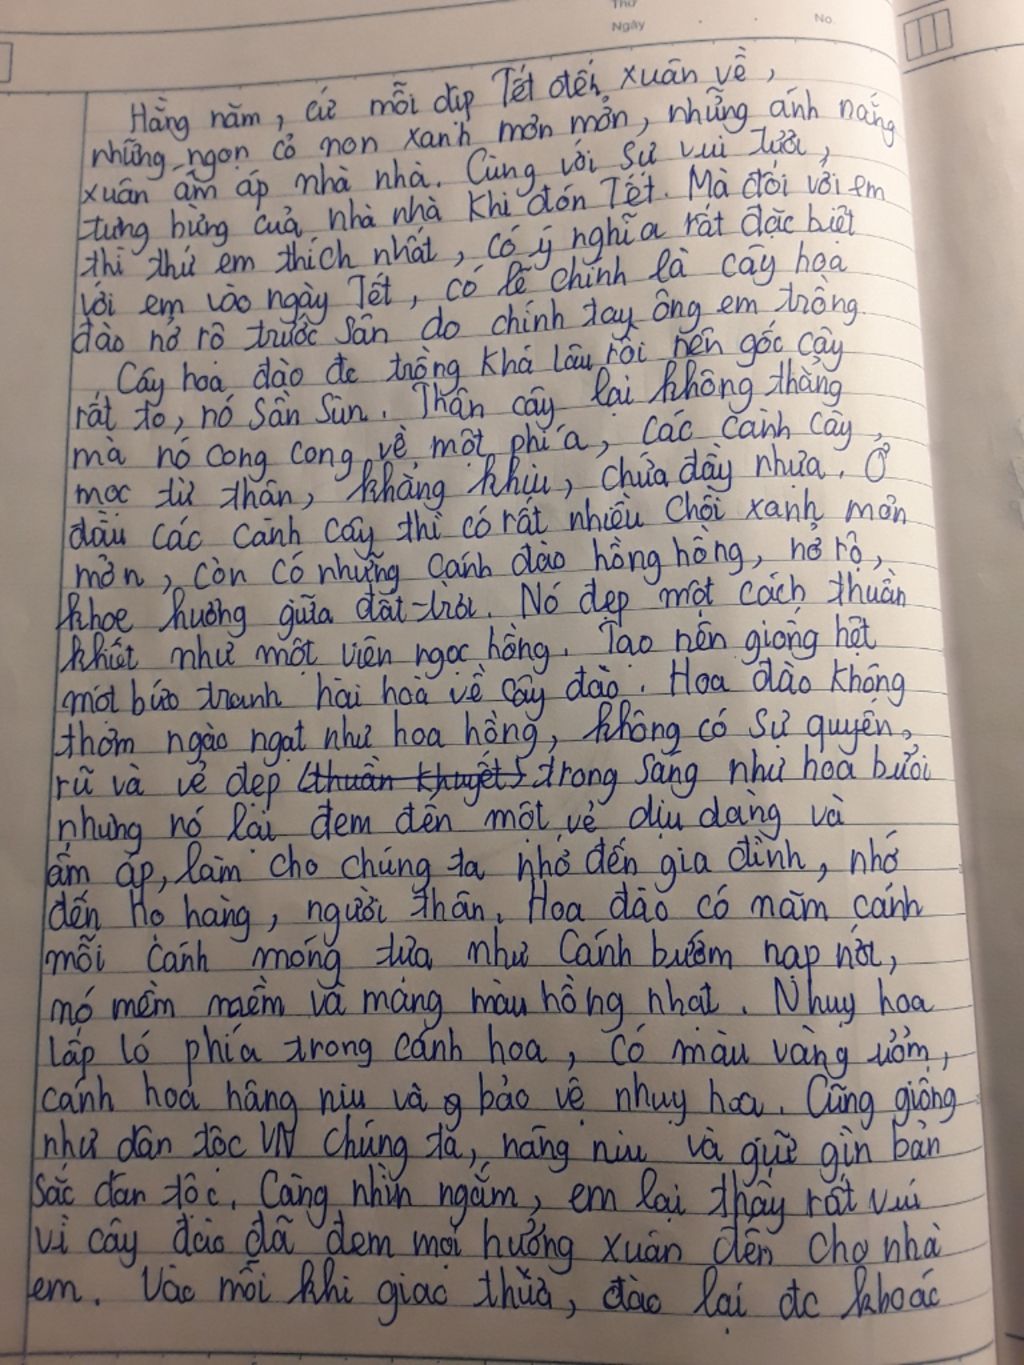 Thứ
Ngày
No.
Hằng năm, cứ mỗi dịp Tết đến xuân về,
những ngọn cỏ non xanh mơn mởn, những ánh nắng
xuân ấm áp nhà nhà. Cùng với sự vui tươi,
tưng bừng cuả nhà nhà khi đón Tết. Mà đối với em
thì thứ em thích nhất, có ý nghĩa rất đặc biệt
với em vào ngày Tết, có lẽ chính là cây hoa
đào nở rộ trước sân do chính tay ông em trồng.
Cây hoa đào đc trồng khá lâu rồi nên gốc cây
rất to, nó sần sùn. Thân cây lại không thẳng
mà nó cong cong về một phía, các cành cây
mọc từ thân, khẳng khịu, chứa đầy nhựa. Ở
đầu các cành cây thì có rất nhiều chồi xanh mơn
mởn, còn có những cánh đào hồng hồng, nở rộ,
khoe hương giữa đất trời. Nó đẹp một cách thuần
khiết như một viên ngọc hồng. Tạo nên giống hệt
một bức tranh hài hoà về cây đào. Hoa đào không
thơm ngào ngạt như hoa hồng, không có sự quyến
rũ và vẻ đẹp (thuần khuyết) trong sáng như hoa bưởi
nhưng nó lại đem đến một vẻ dịu dàng và
ấm áp, làm cho chúng ta nhớ đến gia đình, nhớ
đến họ hàng, người thân. Hoa đào có năm cánh
mỗi cánh mỏng tựa như cánh bướm nạp nơi,
nó mềm mềm và mang màu hồng nhạt. Nhuỵ hoa
lấp ló phía trong cánh hoa, có màu vàng ươm,
cánh hoa nâng niu và g bảo vệ nhuỵ hoa. Cũng giống
như dân tộc VN chúng ta, nâng niu và giữ gìn bản
sắc dân tộc. Càng nhìn ngắm, em lại thấy rất vui
vì cây đào đã đem mọi hương xuân đến cho nhà
em. Vào mỗi khi giao thừa, đào lại đc khoác